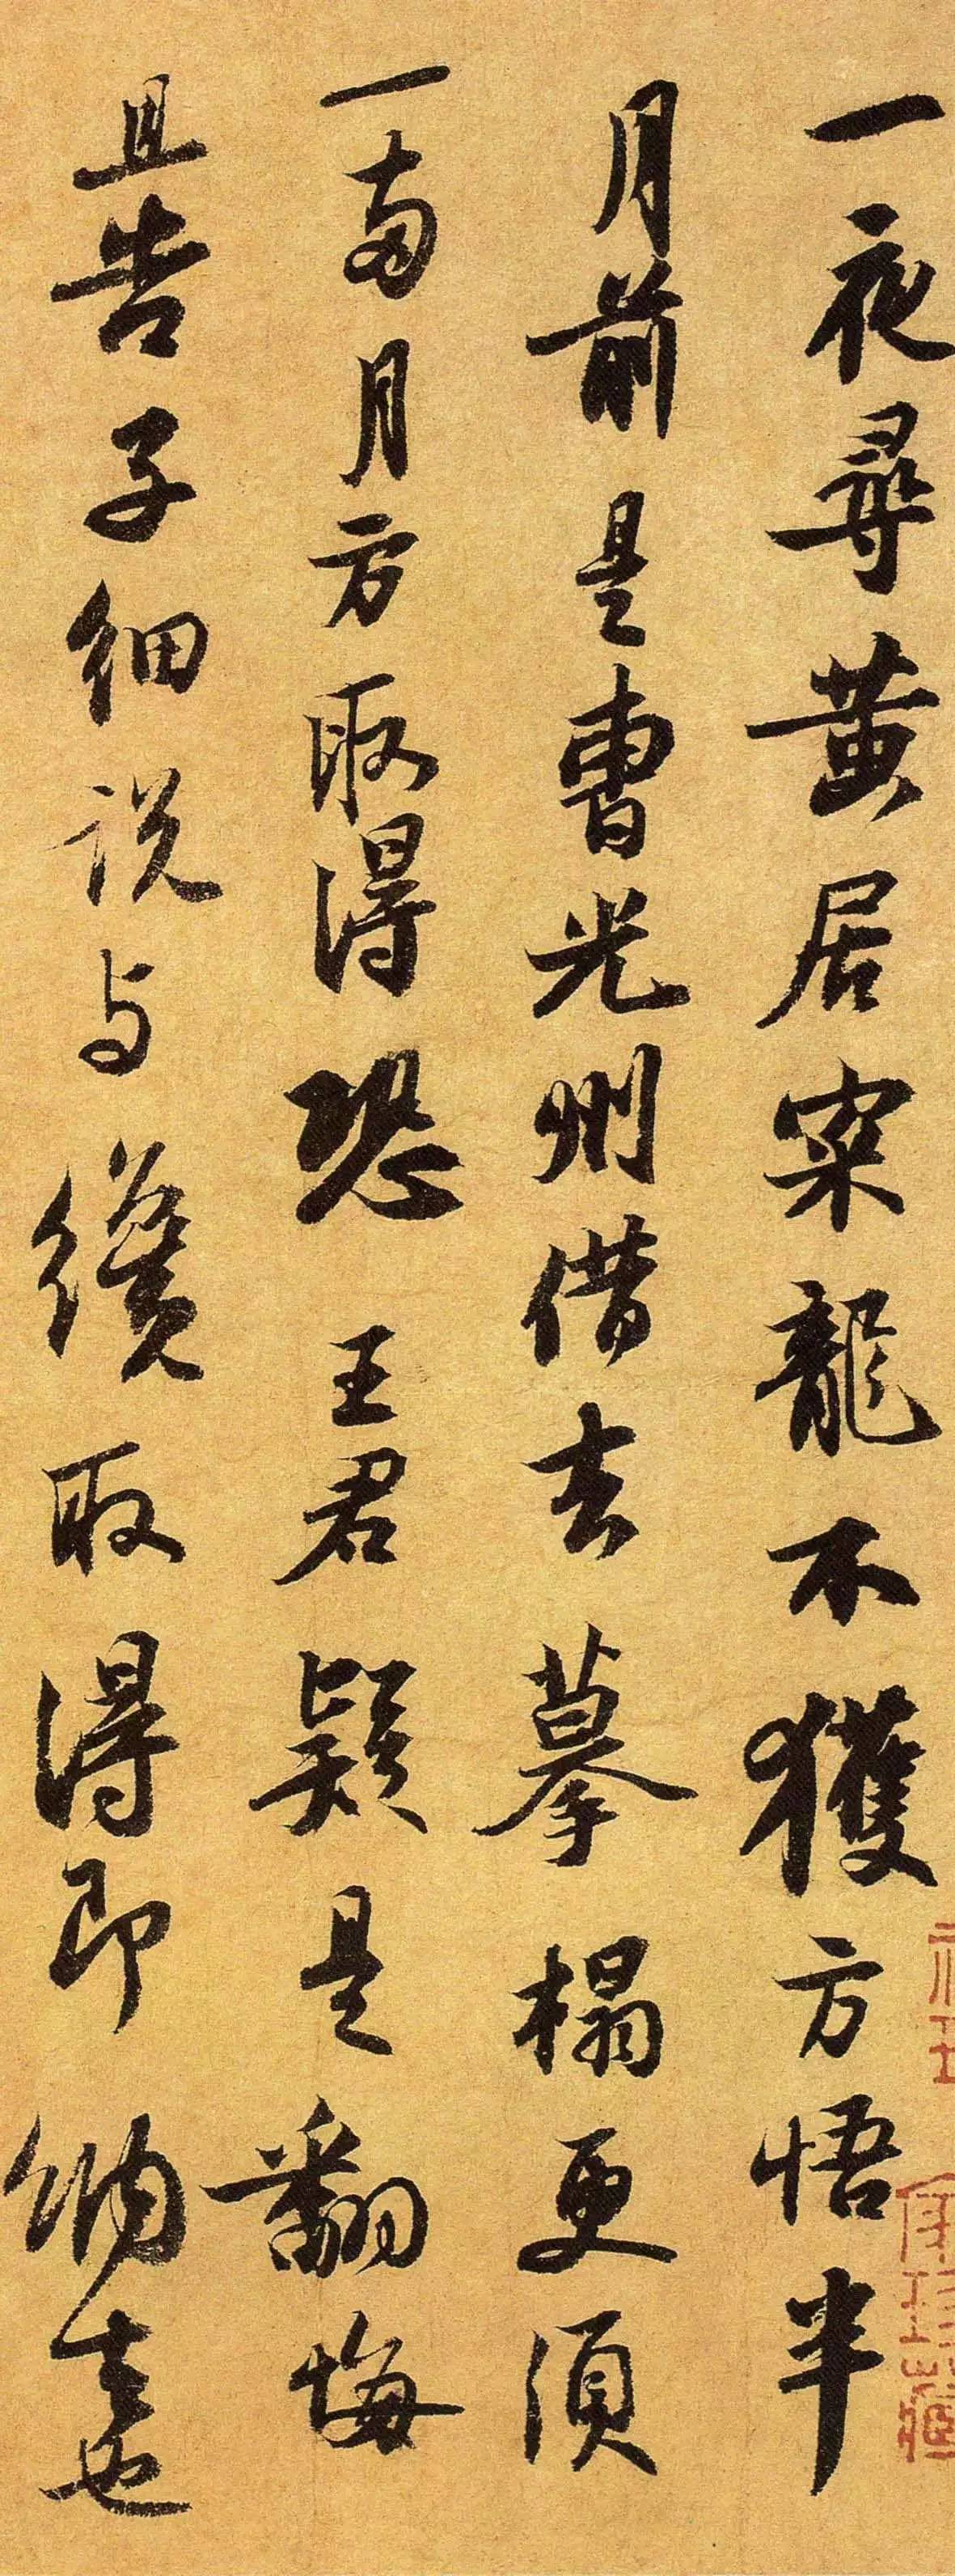 一夜尋黄居寀龍不獲方悟半
月前是曹光州借去摹搨更須
一兩月方取得恐王君疑是翻悔
且告子細説与纔取得即納去也